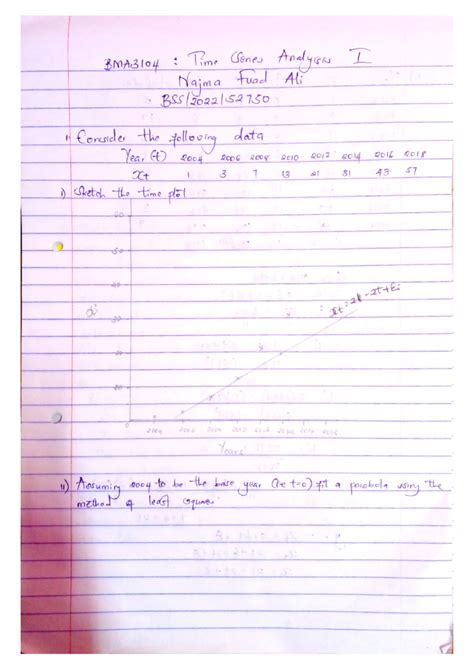 BMA3104 : Time Series Analysis I
Najma Fuad Ali
BSS/2022/52750
1) Consider the following data
Year (t) 2004 2006 2008 2010 2012 2014 2016 2018
Xt 1 3 7 13 21 31 43 57
i) Sketch the time plot
60
50
40
30
20
10
2004 2006 2008 2010 2012 2014 2016
Years
ii) Assuming 2004 to be the base year (ie t=0) fit a parabola using the
method of least square